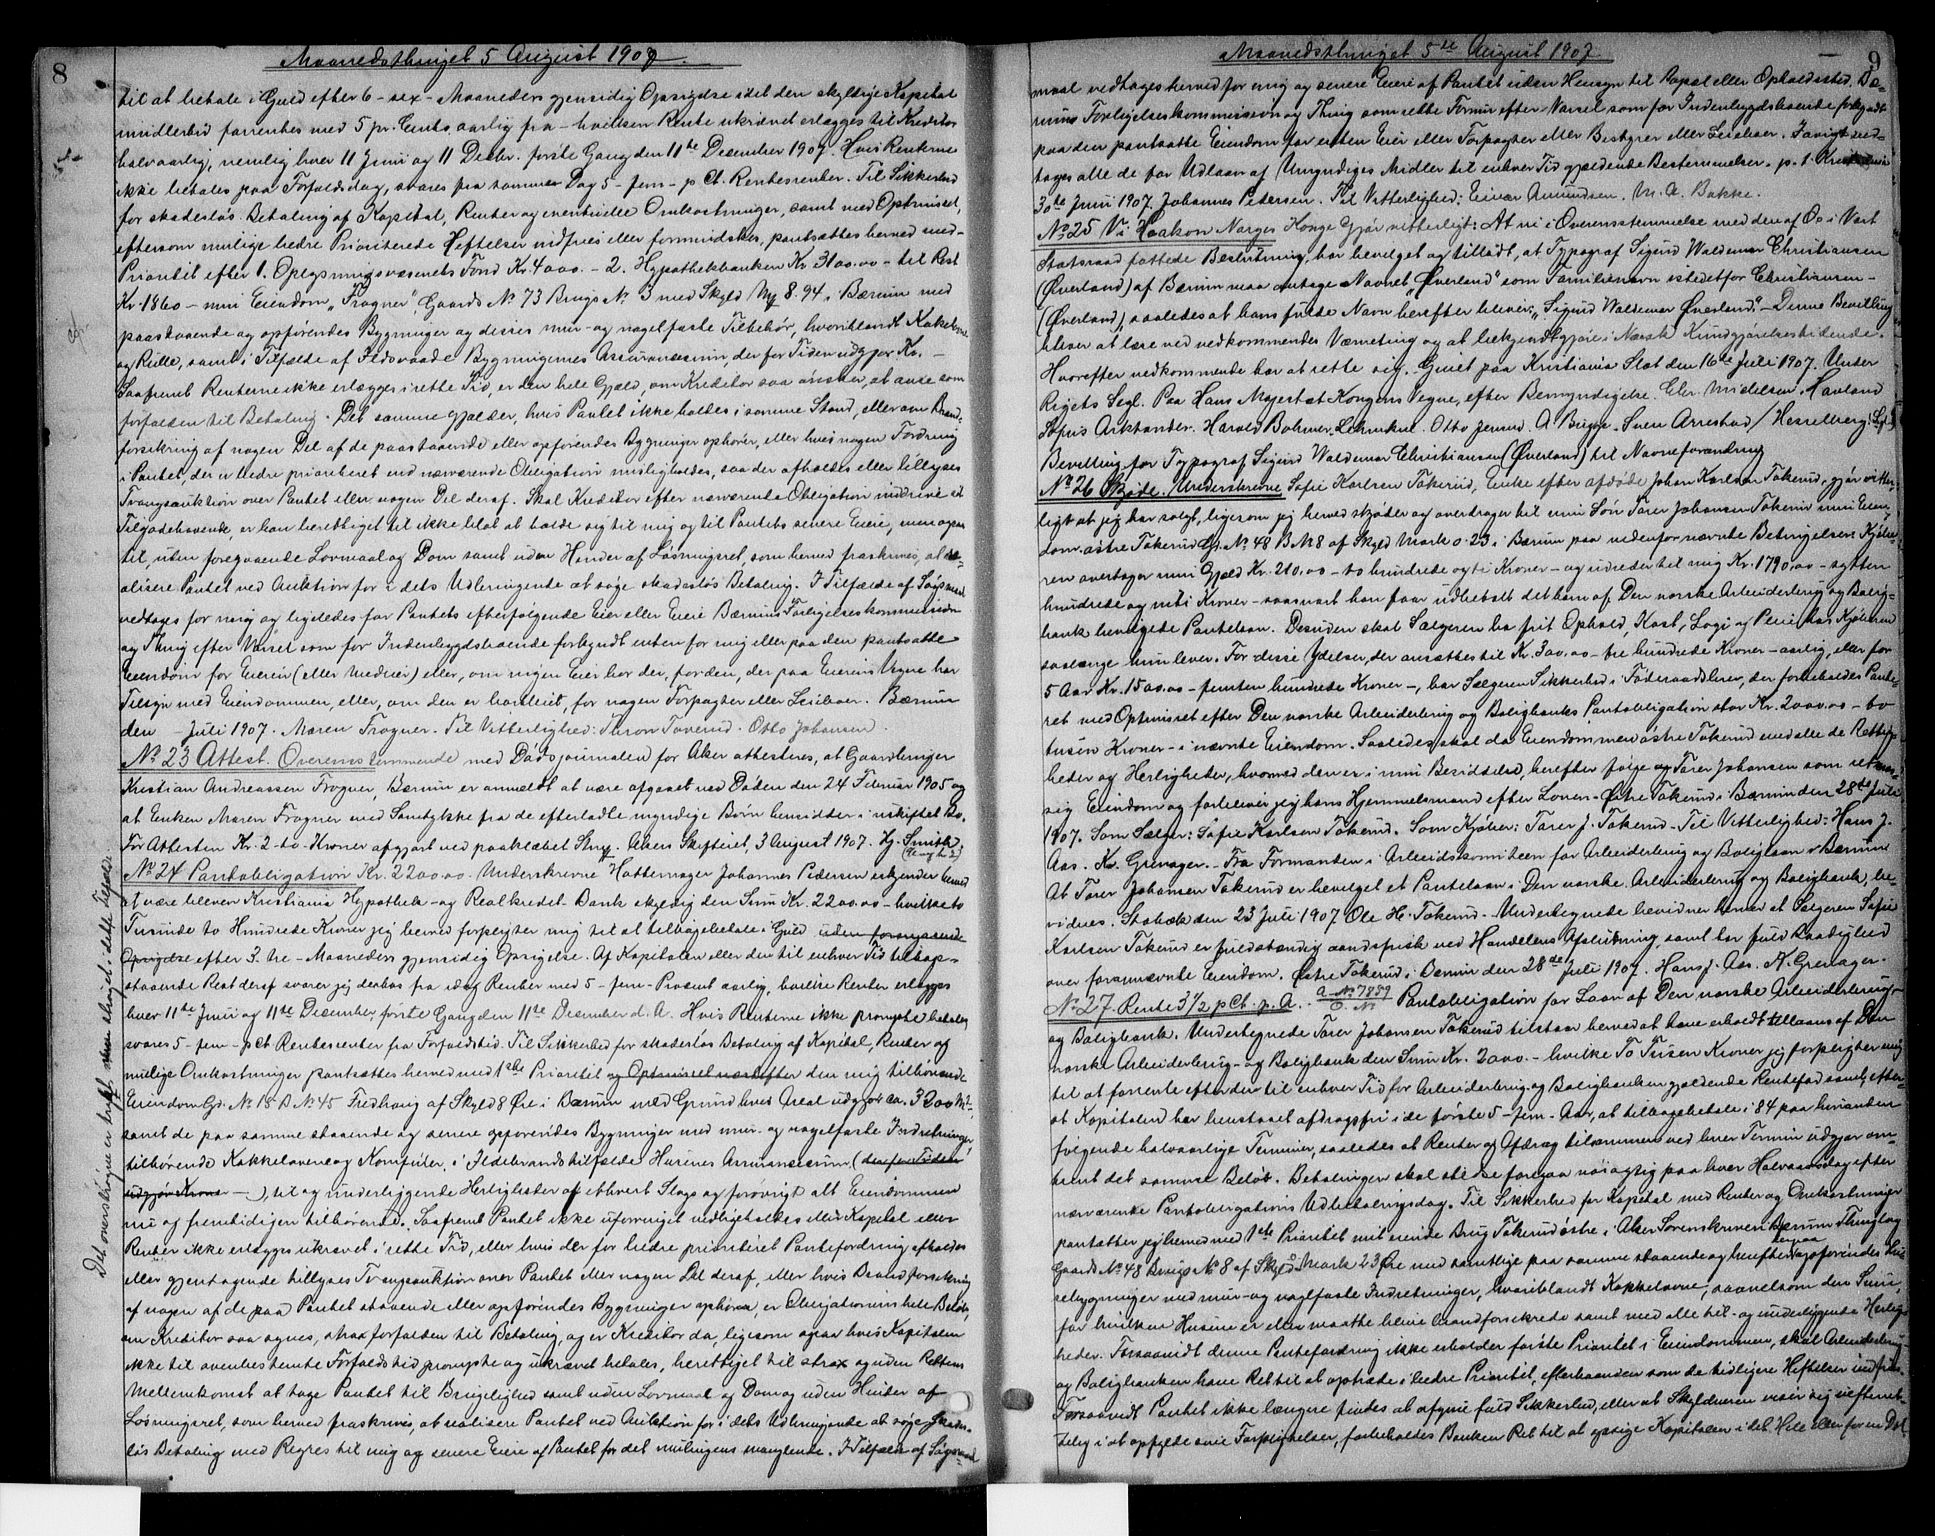 8
Maanedsthinget 5 August 1907.
til at betale i Guld efter 6 - sex - Maaneders gjensidig Opsigelse idet den skyldige Kapital
imidlertid forrentes med 5 pr. Cents aarlig fra - hvilken Rente ukrævet erlægges til Kreditor
halvaarlig, nemlig hver 11 Juni og 11 Decbr. første Gang den 11te December 1907. Hvis Renterne
ikke betales paa Forfaldsdag, svares fra samme Dag 5 - fem - p Ct. Rentesrenter. Til Sikkerhed
for skadesløs Betaling af Kapital, Renter og eventuelle Omkostninger, samt med Optrinsret,
eftersom mulige bedre Prioriterede Heftelser indfries eller formindskes, pantsættes herved med
Prioritet efter 1. Oplysningsvæsenets Fond Kr. 4000. - 2. Hypothekbanken Kr 3100.00 - til Rest
Kr. 1860 - min Eiendom "Frogner", Gaards No 73 Brugs No 3 med Skyld Mk 8.94 i Bærum med
paastaaende og opførendes Bygninger og disses mur- og nagelfaste Tilbehør, hvoriblandt Kakelovne
og Rulle, samt i Tilfælde af Ildsvaade Bygningernes Assurancesum, der for Tiden udgjør Kr. -
Saafremt Renterne ikke erlægges i rette Tid, er den hele Gjæld, om Kreditor saa ønsker, at anse som
forfalden til Betaling. Det samme gjælder, hvis Pantet ikke holdes i samme Stand, eller om Brand-
forsikring af nogen Del af de paastaaende eller opførendes Bygninger ophører, eller hvis nogen Fordring
i Pantet, der er bedre prioriteret end nærværende Obligation misligholdes, saa der afholdes eller tillyses
Tvangsauktion over Pantet eller nogen Del deraf. Skal Kreditor efter nærværende Obligation inddrive sit
Tilgodehavende, er han berettiget til ikke blot at holde sig til mig og til Pantets senere Eiere, men ogsaa
til, uden foregaaende Lovmaal og Dom samt uden Hinder af Løsningsret, som herved fraskrives, at re-
alisere Pantet ved Auktion for i dets Udbringende at søge skadesløs Betaling. I Tilfælde af Søgsmaal
vedtages for mig og ligeledes for Pantets efterfølgende Eier eller Eiere Bærums Forligelseskommission
og Thing efter Varsel som for Indenbygdsboende forkyndt enten for mig eller paa den pantsatte
Eiendom for Eieren (eller Medeier) eller, om ingen Eier bor der, for den, der paa Eierens Vegne har
Tilsyn med Eiendommen, eller, om den er bortleiet, for nogen Forpagter eller Leieboer. Bærum
den - Juli 1907. Maren Frogner. Til Vitterlighed: Thron Toverud. Otto Johansen.
No 23 Attest. Overensstemmende med Dødsjournalen for Aker attesteres, at Gaardbruger
Kristian Andreassen Frogner, Bærum er anmeldt at være afgaaet ved Døden den 24 Februar 1905 og
at Enken Maren Frogner med Samtykke fra de efterladte myndige Børn hensidder i uskiftet Bo.
For Attesten Kr. 2 - to - Kroner afgjort ved paaklæbet Stmp. Akers Skifteret, 3 August 1907. Hj. Smith
No 24 Pantobligation Kr. 2200.00. Underskrevne Hattemager Johannes Pedersen erkjender herved
at være bleven Kristiania Hypothek- og Realkredit-Bank skyldig den Sum Kr. 2200.00 - hvilke to
Tusinde to Hundrede Kroner jeg herved forpligter mig til at tilbagebetale i Guld uden foregaaende
Opsigelse efter 3 - tre - Maaneders gjensidig Opsigelse. Af Kapitalen eller den til enhver Tid tilbage-
staaende Rest deraf svarer jeg derhos fra idag Renter med 5 - fem - Procent aarlig, hvilke Renter erlægges
hver 11te Juni og 11te December, første Gang den 11te December d. A. Hvis Renterne ikke prompte betales
svares 5 - fem - pCt Rentesrenter fra Forfaldstid. Til Sikkerhed for skadesløs Betaling af Kapital, Renter og
mulige Omkostninger pantsættes herved med 1ste Prioritet og Optrinsret næstefter den mig tilhørende
Eiendom Gd. No 18 B No 45 Fredhaug af Skyld 8 Øre i Bærum med Grund hvis Areal udgjør ca. 3200 M2.
samt de paa samme staaende og senere opførendes Bygninger med mur- og nagelfaste Indretninger,
tilhørende Kakkelovne og Komfurer, i Ildebrandstilfælde Husenes Assurancesum (der for Tiden
udgjør Krone -), til og underliggende Herligheder af ethvert Slags og forøvrigt alt Eiendommen
nu og fremtidigen tilhørende. Saafremt Pantet ikke uforringet vedligeholdes eller Kapital eller
Renter ikke erlægges ukrævet i rette Tid, eller hvis der for bedre prioriteret Pantefordring afholdes
eller gjentagende tillyses Tvangsauktion over Pantet eller nogen Del deraf, eller hvis Brandforsikring
af nogen af de paa Pantet staaende eller opførendes Bygninger ophører, er Obligationens hele Beløb,
om Kreditor saa synes, strax forfalden til Betaling, og er Kreditor da, ligesom ogsaa hvis Kapitalen
ikke til ovenbestemte Forfaldstid prompte og ukrævet betales, berettiget til strax og uden Rettens
Mellemkomst at tage Pantet til Brugelighed samt uden Lovmaal og Dom og uden Hinder af
Løsningsret, som herved fraskrives, at realisere Pantet ved Auktion for i dets Udbringende at søge skades-
løs Betaling med Regres til mig og senere Eiere af Pantet for det muligens manglende. I Tilfælde af Søgs-
Det overstrøgne er trøft, som strøget i dette Tilfælde.
Maanedsthinget 5te August 1907.
9
maal vedtages herved for mig og senere Eiere af Pantet uden Hensyn til Bopæl eller Opholdssted, Bæ-
rums Forligelseskommission og Thing som rette Forum efter Varsel som for Indenbygdsboende forkyndt
paa den pantsatte Eiendom for enten Eier eller Forpagter eller Bestyrer eller Leieboer. Iøvrigt ved-
tages alle de for Udlaan af Umyndiges Midler til enhver Tid gjældende Bestemmelser. p. t. Kristiania
30te Juni 1907. Johannes Pedersen. Til Vitterlighed: Einar Amundsen. M. A. Bakke.
No 25 Vi Haakon Norges Konge Gjør vitterligt: At vi i Overensstemmelse med den af Os i Vort
Statsraad fattede Beslutning, har bevilget og tilladt, at Typograf Sigurd Waldemar Christiansen
(Øverland) af Bærum maa antage Navnet "Øverland" som Familienavn istedetfor Christiansen
(Øverland), saaledes at hans fulde Navn herefter bliver: "Sigurd Waldemar Øverland." - Denne Bevilling
bliver at læse ved vedkommendes Værneting og at bekjendtgjøre i Norsk Kundgjørelsestidende.
Hvorefter vedkommende har at rette sig. Givet paa Kristiania Slot den 16de Juli 1907. Under
Rigets Segl. Paa Hans Majestæt Kongens Vegne, efter Bemyndigelse. Chr. Michelsen. Hovland
Sofus Arktander. Harald Bothner. Lehmkul. Otto Jensen. A Brigge. Sven Aarrestad / Hesselberg (L.S.)
Bevilling for Typograf Sigurd Waldemar Christiansen (Øverland) til Navneforandring
No 26 Skjøde. Underskrevne Sofie Karlsen Tokerud, Enke efter afdøde Johan Karlsen Tokerud, gjør vitter-
ligt at jeg har solgt, ligesom jeg herved skjøder og overdrager til min Søn Tarer Johansen Tokerud min Eien-
dom østre Tokerud G. No 48 B No 8 af Skyld Mark 0.23 i Bærum paa nedenfor nævnte Betingelser: Kjøbe-
ren overtager min Gjæld Kr. 210.00 - to hundrede og ti Kroner - og udreder til mig Kr. 1790.00 - sytten
hundrede og nitti Kroner - saasnart han faar udbetalt det ham af Den norske Arbeiderbrug og Bolig-
bank bevilgede Pantelaan. Desuden skal Sælgeren ha frit Ophold, Kost, Logi og Pleie hos Kjøberen
saalænge hun lever. For disse Ydelser, der ansættes til Kr. 300.00 - tre hundrede Kroner - aarlig, eller for
5 Aar Kr. 1500.00 - femten hundrede Kroner -, har Sælgeren Sikkerhed i Føderaadsbrev, der forbeholdes Pante-
ret med Optrinsret efter Den norske Arbeiderbrug og Boligbanks Pantobligation stor Kr. 2000.00 - to
tusen Kroner - i nævnte Eiendom. Saaledes skal da Eiendommen østre Tokerud med alle de Rettig-
heder og Herligheder, hvormed den er i min Besiddelse, herefter følge og Tarer Johansen som retmæs-
sig Eiendom og forbliver jeg hans Hjemmelsmand efter Loven. Østre Tokerud i Bærum den 28de Juli
1907. Som Sælger: Sofie Karlsen Tokerud. Som Kjøber: Tarer J. Tokerud. Til Vitterlighed: Hans J.
Aas. K. Grenager. - Fra Formanden i Arbeidskomiteen for Arbeiderbrug og Boliglaan i Bærum
At Tarer Johansen Tokerud er bevilget et Pantelaan i Den norske Arbeiderbrug og Boligbank, be-
vidnes. Stabæk den 23 Juli 1907 Ole H. Tokerud. Undertegnede bevidner herved at Sælgeren Sofie
Karlsen Tokerud er fuldstændig aandsfrisk ved Handelens Afslutning, samt har fuld Raadighed
over forannævnte Eiendom. Østre Tokerud i Bærum den 28de Juli 1907. Hans J. Aas. K. Grenager.
No 27. Rente 3 1/2 pCt. p. A. A No 7889 Pantobligation for Laan af Den norske Arbeiderbrug-
og Boligbank. Undertegnede Tarer Johansen Tokerud tilstaar herved at have erholdt tillaans af Den
norske Arbeiderbrug- og Boligbank den Sum Kr. 2000. - hvilke To Tusen Kroner jeg forpligter mig
til at forrente efter den til enhver Tid for Arbeiderbrug- og Boligbanken gjældende Rentefod samt, efter-
at Kapitalen har henstaaet afdragsfri i de første 5 - fem - Aar, at tilbagebetale i 84 paa hinanden
følgende halvaarlige Terminer, saaledes at Renter og Afdrag tilsammen ved hver Termin udgjør om-
trent det samme Beløb. Betalinger skal ske foregaa nøiagtig paa hver Halvaarsdag efter
nærværende Pantobligations Udbetalingsdag. Til Sikkerhed for Kapital med Renter og Omkostninger
pantsætter jeg herved med 1ste Prioritet mit eiende Brug Tokerud østre i Aker Sorenskriveri Bærum Thinglag
Gaards No 48 Brugs No 8 af Skyld 0 Mark 23 Øre med samtlige paa samme staaende og herefter derpaa opførendes Hus-
bebygninger med mur- og naglfaste Indretninger, hvoriblandt Kakkelovne, saavelsom den Sum,
for hvilken Husene er eller maatte blive brandforsikrede samt med alle til- og underliggende Herlig-
heder. Forsaavidt denne Pantefordring ikke erholder første Prioritet i Eiendommen, skal Arbeiderbrug-
og Boligbanken have Ret til at optræde i bedre Prioritet, efterhaanden som de tidligere Heftelser indfries.
Forsaavidt Pantet ikke længere findes at afgive fuld Sikkerhed, eller at Skyldneren viser sig uefterret-
telig i at opfylde sine Forpligtelser, forbeholdes Banken Ret til at opsige Kapitalen i det Hele eller for en Del